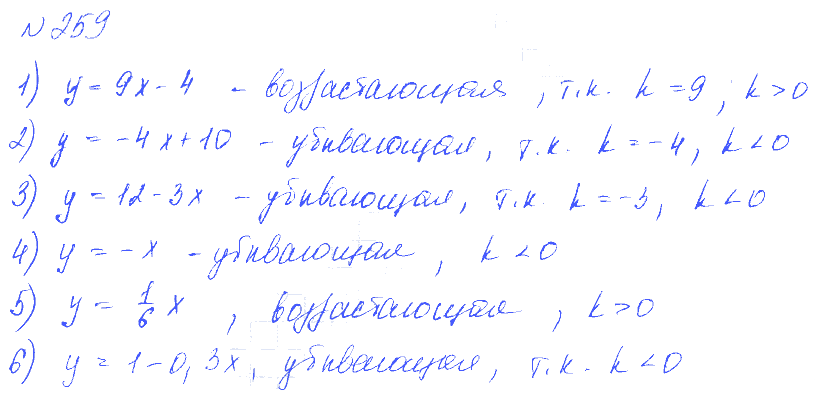 N 259
1) y = 9x - 4 - возрастающая, т.к. k = 9; k > 0
2) y = -4x + 10 - убивающая, т.к. k = -4, k < 0
3) y = 12 - 3x - убивающая, т.к. k = -3, k < 0
4) y = -x - убивающая, k < 0
5) y = 1/6 x, возрастающая, k > 0
6) y = 1 - 0,3x, убивающая, т.к. k < 0